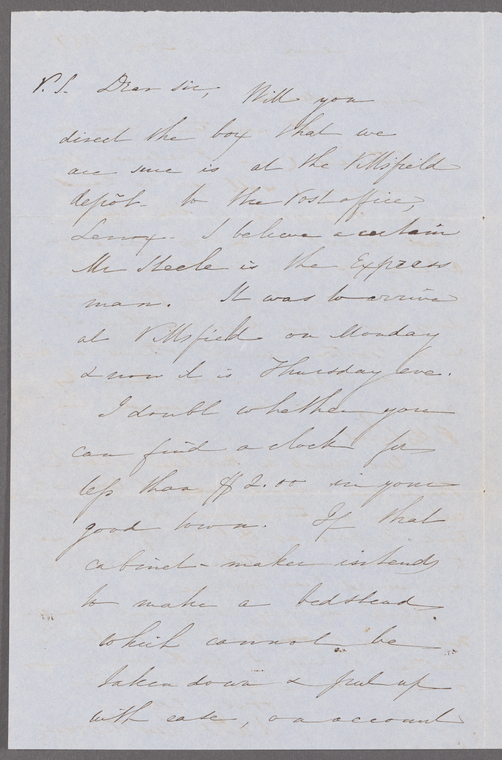 P.S. Dear sir, Will you
direct the box that we
are sure is at the Pittsfield
depôt to the Post office,
Lenox. I believe a certain
Mr Steele is the Express
man. It was to arrive
at Pittsfield on Monday
& now it is Thursday eve.
I doubt whether you
can find a clock for
less than $2.00 in your
good town. If that
cabinet-maker intends
to make a bedstead
which cannot be
taken down & put up
with ease, on account